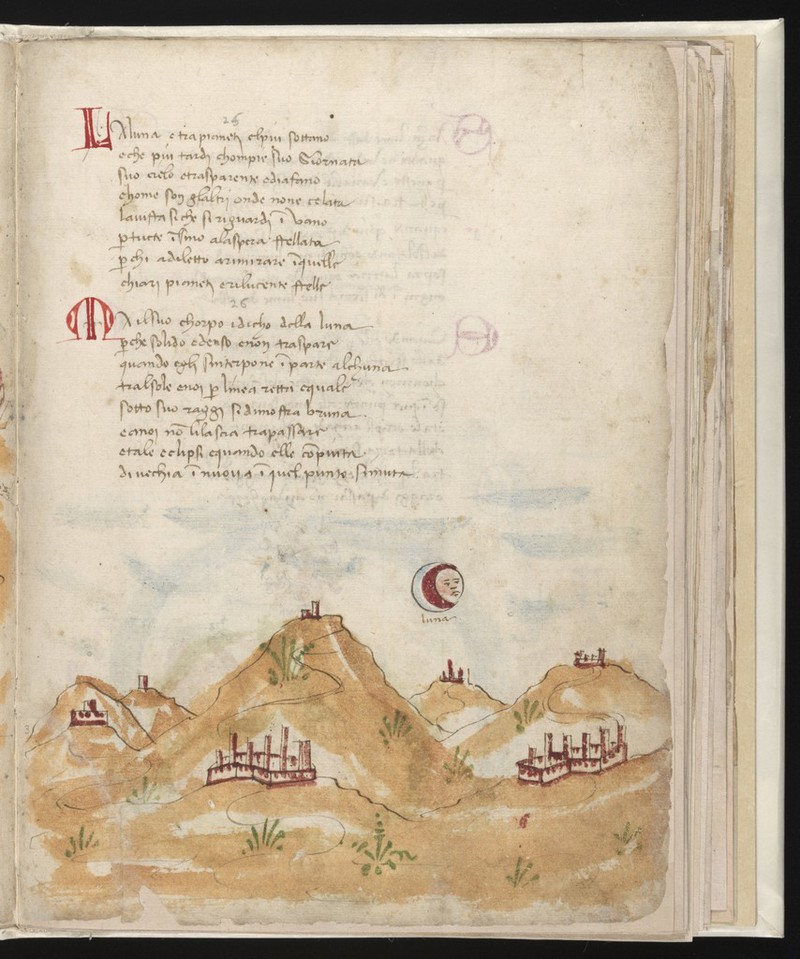 25
La luna e tra pianeti el piu sottano
e che piu tardi chompie suo giornata
suo cielo e trasparente e diafano
chome son glaltri onde none celata
la uista si che si riguardi ī uano
p tucte īsino alaspera stellata
p chi a diletto a rimirare ī quelle
chiari pianeti e rilucente stelle
26
Ma il suo chorpo i dicho della luna
p che solido e denso e non traspare
quando egli sinterpone ī parte alchuna
tral sole e noi p linea retta equale
sotto suo raggi si dimostra bruna
e a noi nō li lascia trapassare
e tale eclipsi e quando elle cōpiuta
di uechia ī nuoua ī quel punto si muta
luna